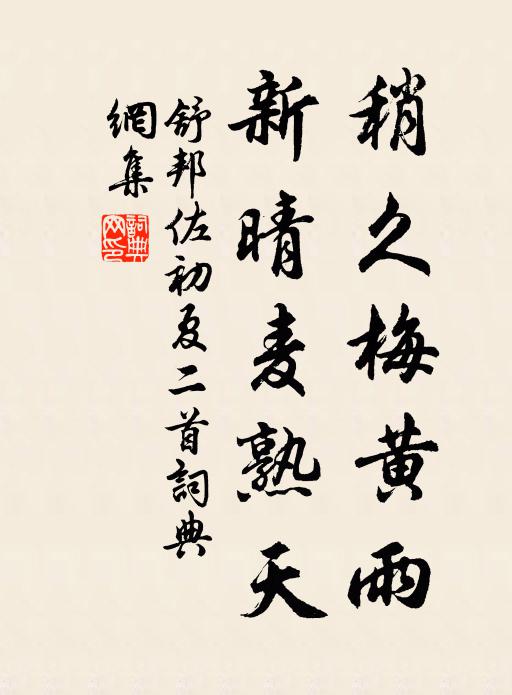 稍久梅黄雨
新晴麦熟天
舒邦佐初夏二首詞典
網集
詞典
网印